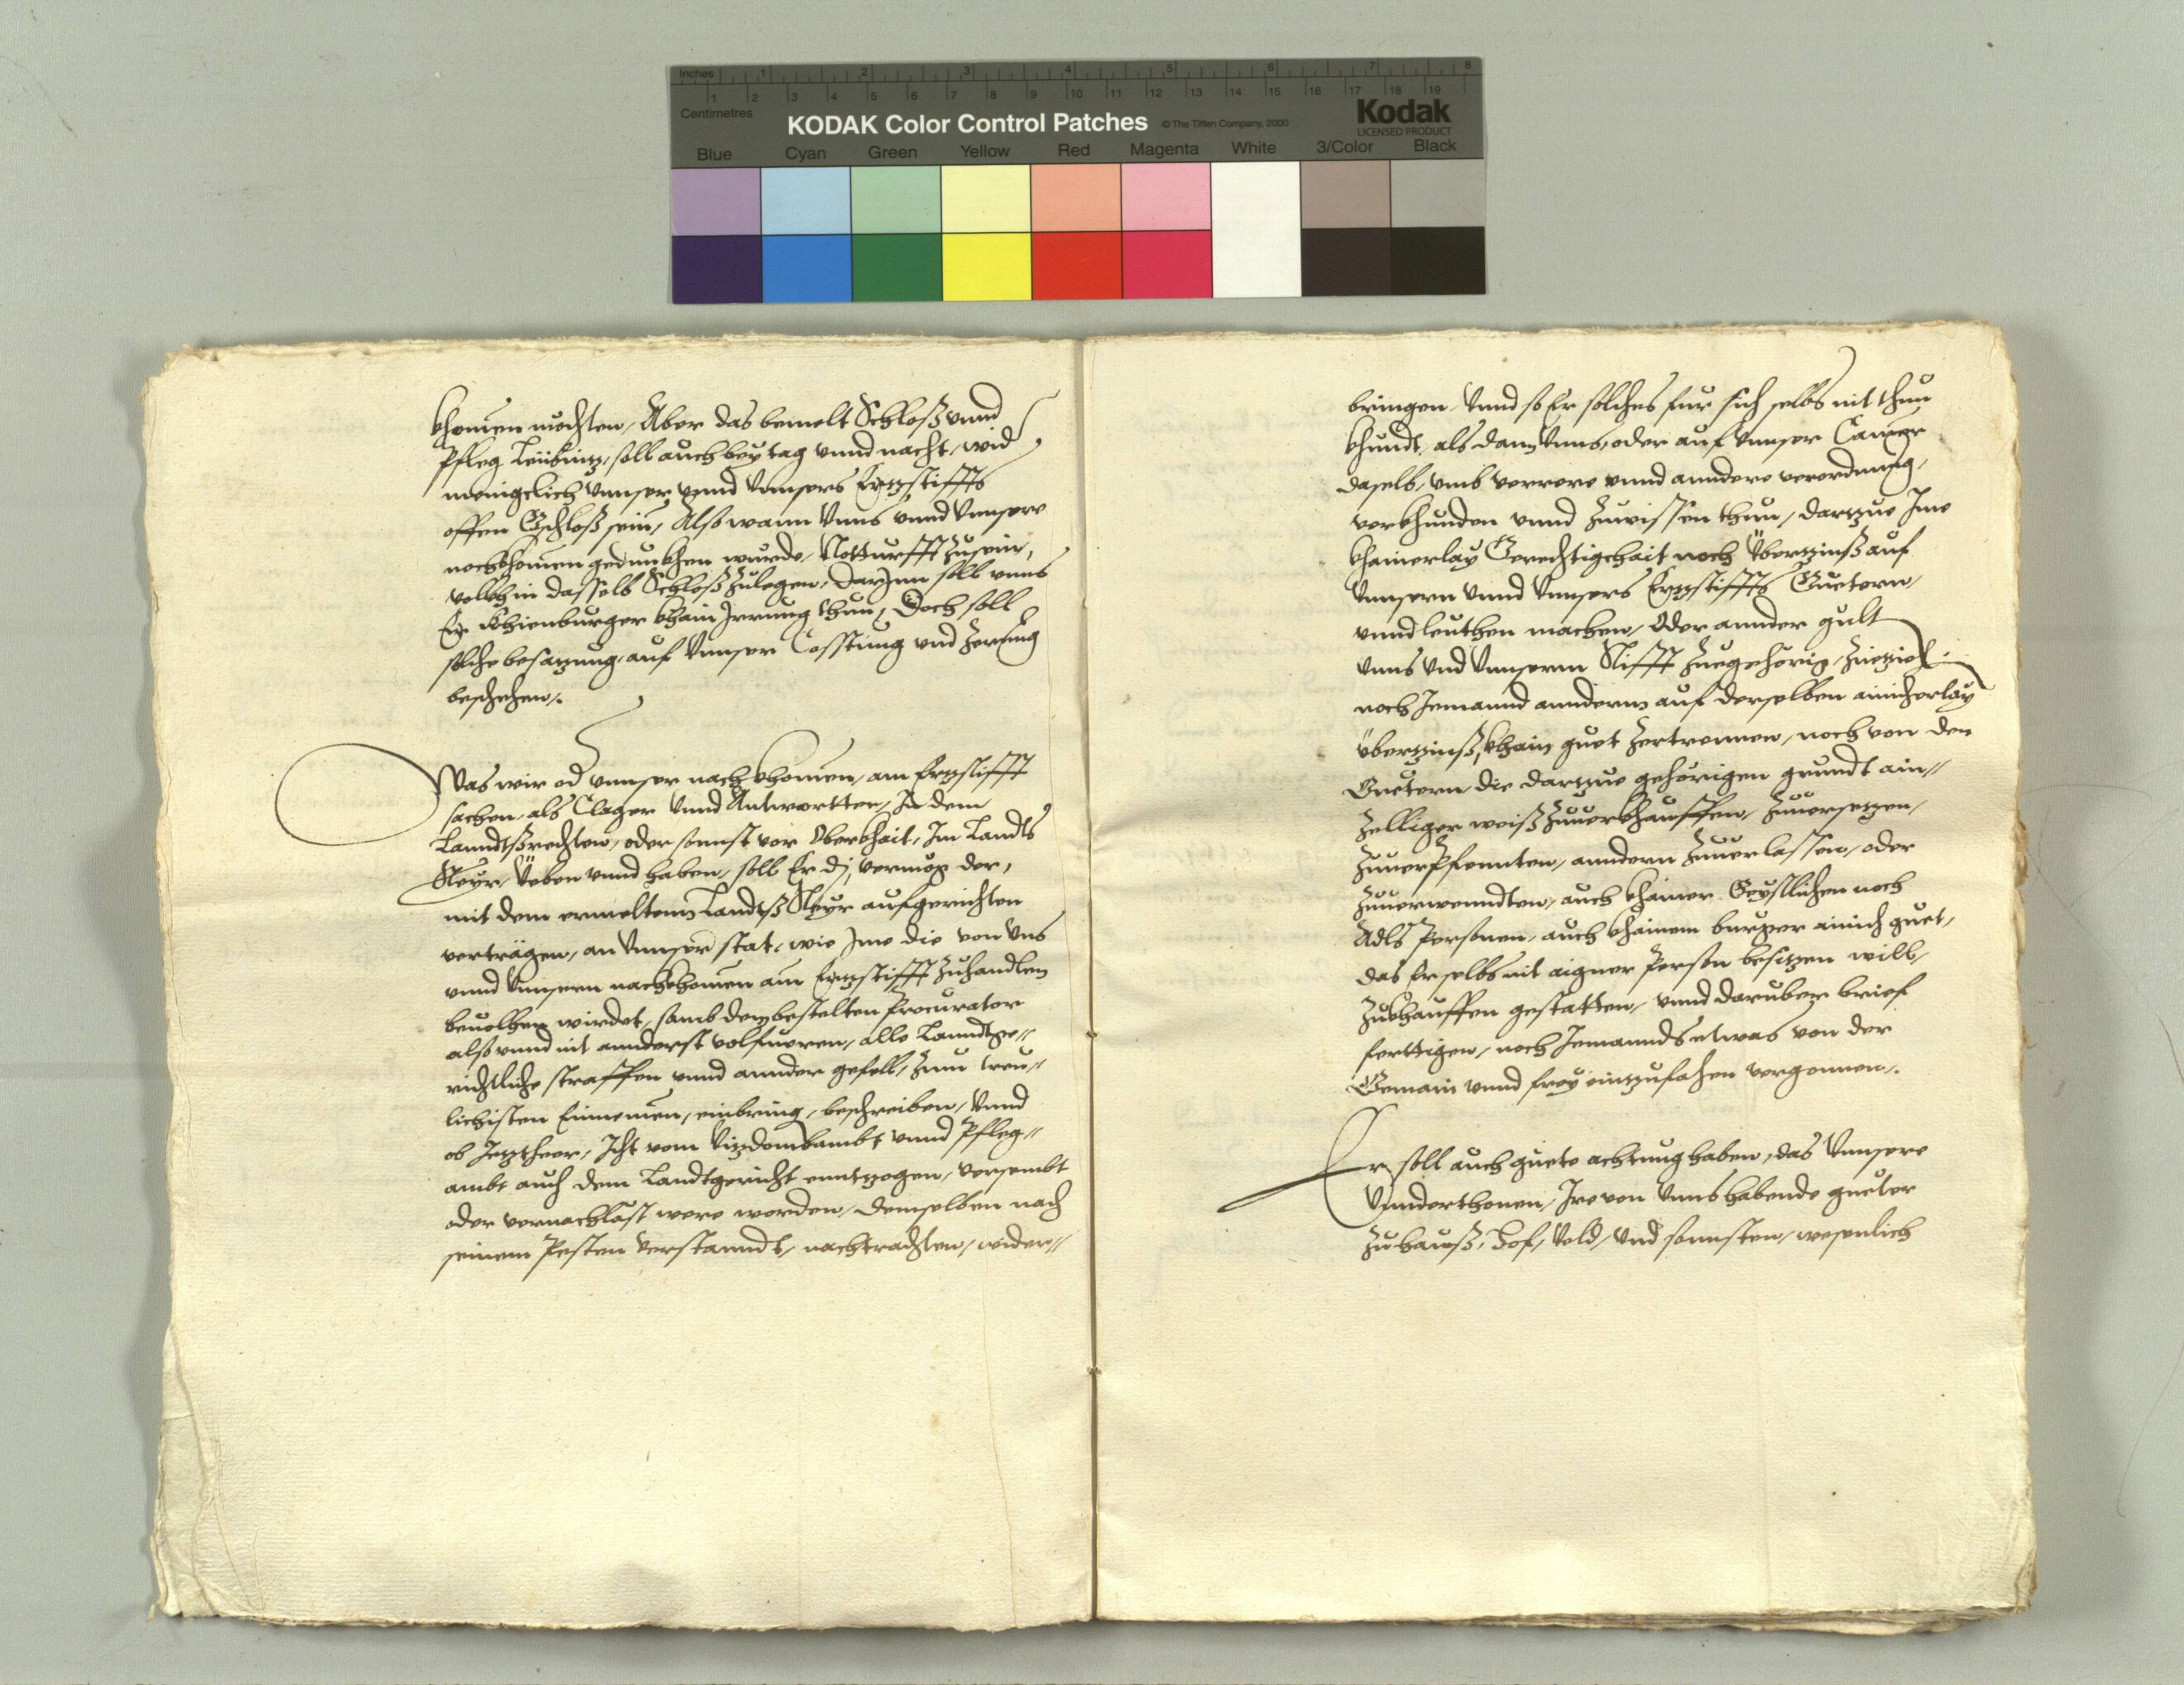 Inches 1 2 3 4 5 6 7 8
Centimetres 1 2 3 4 5 6 7 8 9 10 11 12 13 14 15 16 17 18 19
KODAK Color Control Patches © The Tiffen Company, 2000 Kodak
LICENSED PRODUCT
Blue Cyan Green Yellow Red Magenta White 3/Color Black
khomen mochten, Aber das bemelt Schloß vnnd
Pfleg Leibnitz, soll auch bey tag vnnd nacht, wid
menigclich vnnser vnnd Vnnsers Ertzstiffts
offen Gschloß sein, Also wann Vnns vnnd Vnnsere
nachkhomen gedunkhen wurde, Notturfft zusein,
volkh in dasselb Schloß zulegen, darJnn soll vnns
Er Khienburger khain Jrrung thun, Doch soll
solche besatzung, auf Vnnser Cosstung vnd Zerung
beschehen.
Was wir od vnnser nachkhomen, am Ertzstifft
sachen, als Clager Vnnd Antwortter, In dem
Lanndtßrechten, oder sonnst vor Oberkhait, Im Landts
Steyr, Üeben vnnd haben, soll Er dj, vermug der,
mit dem ermelten Landtß Steyr aufgerichten
verträgen, an Vnnser stat, wie Jme die von Vns
vnnd Vnnsern nachkhomen am Ertzstifft zuhandlen
beuolhen wirdet, sambt dem bestelten Procurator
also vnnd nit annderst volfueren, alle Lanndtge"
richtliche straffen vnnd annder gefell, zum treu"
lichisten Einnemen, einbring, beschreiben, Vnnd
ob Jetzther, Icht vom Vitzdombambt vnnd Pfleg"
ambt auch dem Landtgericht enntzogen, versambt
oder vernachlast were worden, demselben nach
seinem Pesten Verstanndt, nachtrachten, wider"
bringen. Vnnd so Er solches fur sich selbs nit thun
khundt, als dann Vnns, oder auf Vnnser Camer
daselb, vmb verrere vnnd anndere verordnung,
verkhunden vnnd zuwissen thun, dartzue Jme
khainerlay Gerechtigchait noch Übertzinß auf
Vnnsern vnnd Vnnsers Ertzstiffts Guetern,
vnnd leuthen machen, Oder annder gult
Vnns vnd Vnnserm Stifft zuegehörig,
noch Jemannd annderm auf derselben ainicherlay
übertzinß, khain guet zertrennen, noch von den
Guetern die dartzue gehörigen grundt ain"
zelliger weiß zuuerkhauffen, zuuersetzen,
zuuerpfennten, anndern zuuerlassen, oder
zuuerwenndten, auch khainer Geystlichen noch
Adls Personen, auch khainem burger ainich guet,
das Er selbs mit aigner Person besitzen will,
zukhauffen gestatten, vnnd daruber brief
ferttigen, noch Jemannds etwas von der
Gemain vnnd frey eintzufahen vergonnen.
Er soll auch guete achtung haben, das Vnnsere
Vnnderthonen, Ire von Vnns habende gueter
zu hauß, Hof, Veld, Vnd sonnsten, wesenlich